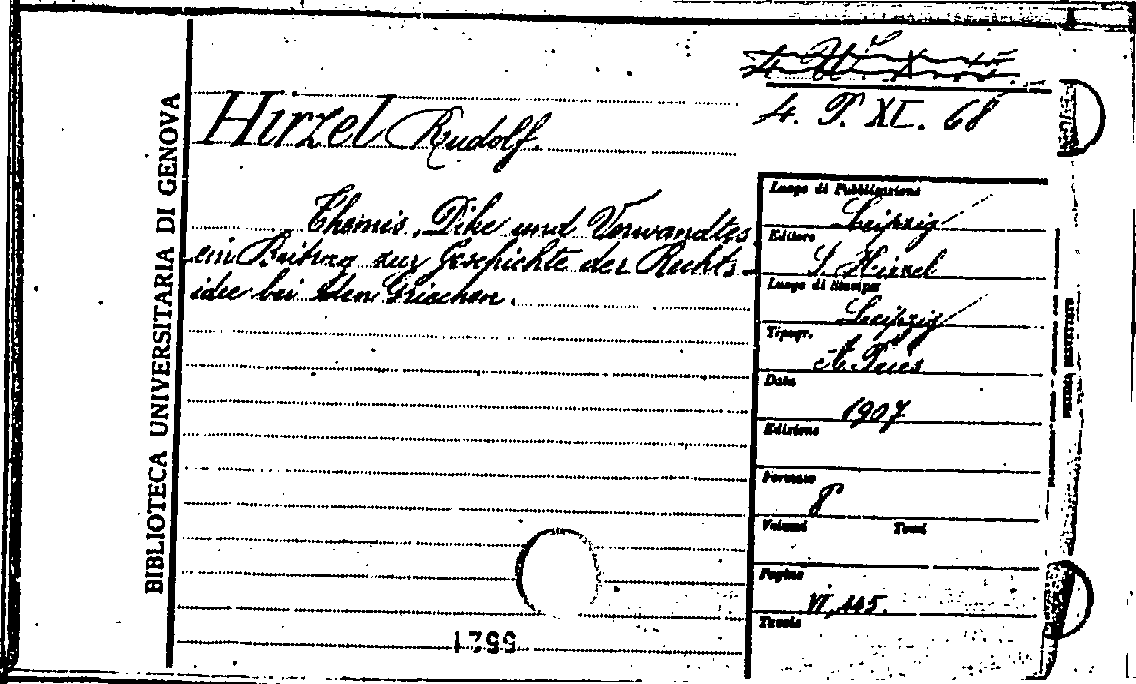 BIBLIOTECA UNIVERSITARIA DI GENOVA
4. T. XI. 68
Hirzel Rudolf.
Themis, Dike und Verwandtes
ein Beitrag zur Geschichte der Rechts-
idee bei den Griechen.
Luogo di Pubblicazione
Leipzig
Editore
S. Hirzel
Luogo di Stampa
Leipzig
Tipogr.
A. Pries
Data
1907
Edizione
Formato
8
Volumi Tomi
Pagine
VI, 445.
Tavole